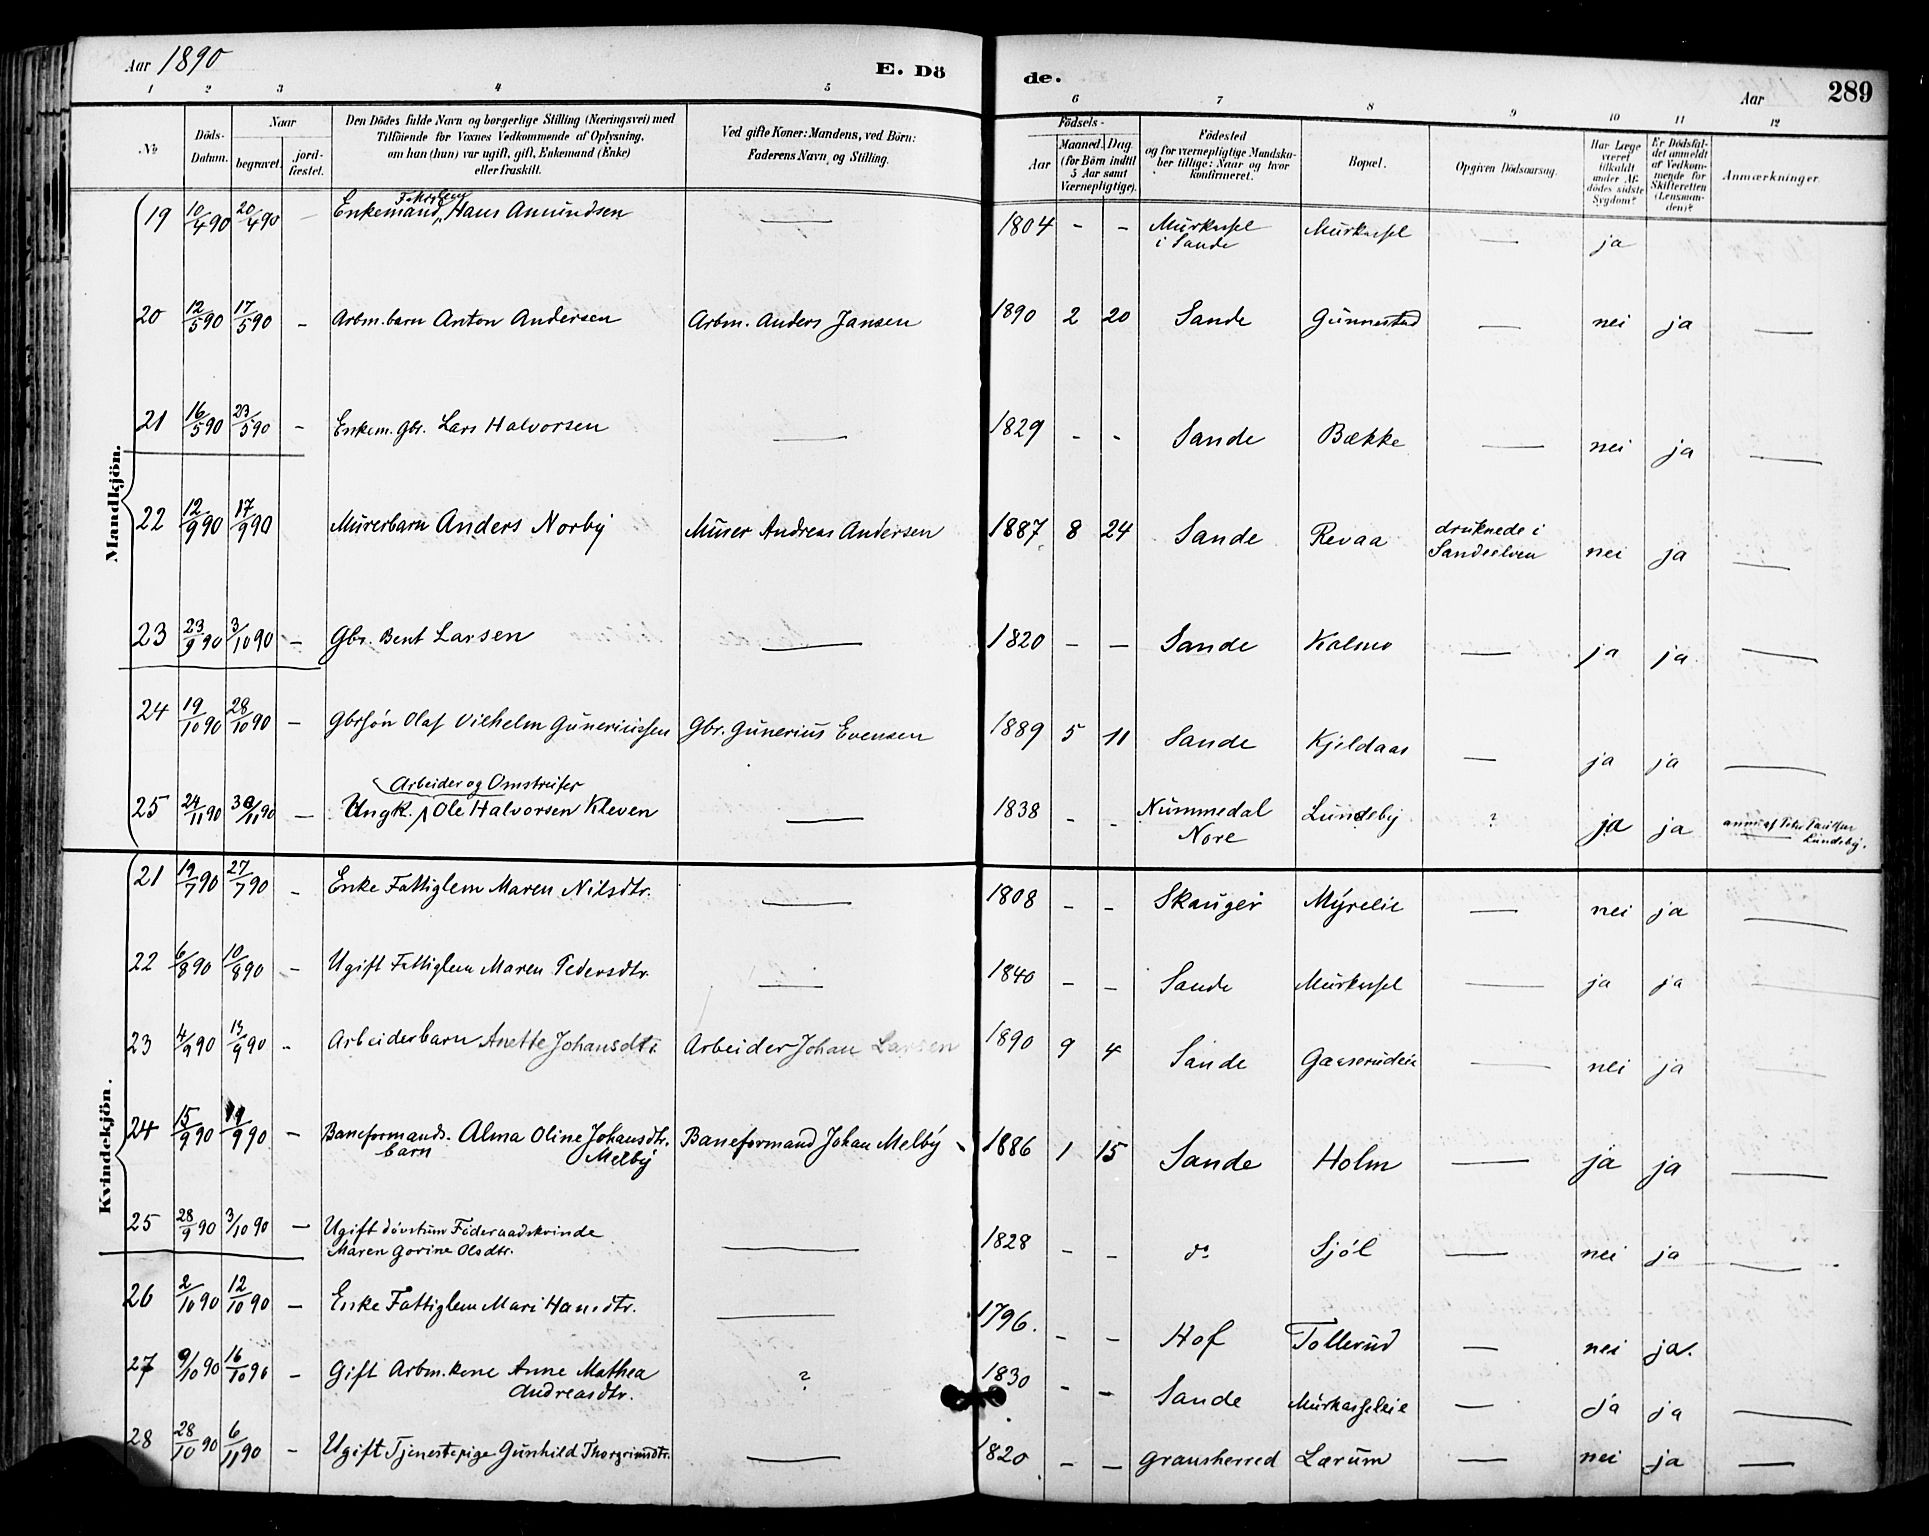 Aar 1890
E. Dö
de.
Aar
289
1 2 3 4 5 6 7 8 9 10 11 12
№
Döds-Datum.
Naar
begravet.
jord-fæstet.
Den Dödes fulde Navn og borgerlige Stilling (Næringsvei) med
Tilföiende for Voxnes Vedkommende af Oplysning,
om han (hun) var ugift, gift, Enkemand (Enke)
eller fraskilt.
Ved gifte Koner: Mandens, ved Börn:
Faderens Navn og Stilling.
Födsels-
Aar
Maaned. Dag.
(for Börn indtil
5 Aar samt
Værnepligtige).
Födested
og for værnepligtige Mandska-
ber tillige: Naar og hvor
konfirmeret.
Bopæl.
Opgiven Dödsaarsag.
Har Læge
været
tilkaldt
under Af-
dödes sidste
Sygdom?
Er Dödsfal-
det anmeldt
af Vedkom-
mende for
Skifteretten
(Lensman-
den)?
Anmærkninger.
Mandkjön.
19 10/4 90 20/4 90 – Enkemand, Hans Amundsen — 1804 – – Murkassel i Sande Murkassel — ja
20 12/5 90 17/5 90 – Arbm. barn Anton Andersen Arbm. Anders Jansen 1890 2 20 Sande Gunnestad — nei ja —
21 16/5 90 23/5 90 – Enkem. Gbr. Lars Halvorsen — 1829 – – Sande Bække — nei ja —
22 12/9 90 17/9 90 Murerbarn Anders Norby Murer Andreas Andersen 1887 8 24 Sande Revaa druknede i Sandeelven nei ja —
23 23/9 90 3/10 90 – Gbr. Bent Larsen — 1820 – – Sande Kolmo — ja ja —
24 19/10 90 28/10 90 – Gbrsön Olaf Vilhelm Guneriussen Gbr. Gunerius Evensen 1889 5 11 Sande Kjeldaas — ja ja —
Arbeider og Omstreifer
25 24/11 90 30/11 90 – Ungk. Ole Halvorsen Kleven — 1838 – – Nummedal Nore Lundeby ? ja ja anm. af Lundeby.
Kvindekjön.
21 19/7 90 27/7 90 – Enke Fattiglem Maren Nilsdtr. — 1808 – – Skauger Myreeie — nei ja —
22 6/8 90 10/8 90 – Ugift Fattiglem Maren Pedersdtr. — 1840 – – Sande Murkassel — ja ja —
23 4/9 90 13/9 90 – Arbeiderbarn Anette Johansdtr. Arbeider Johan Larsen 1890 9 4 Sande — nei ja —
24 15/9 90 19/9 90 – Baneformands- barn Alma Oline Johansdtr. Melby Baneformand Johan Melby 1886 1 15 Sande Holm — ja ja —
25 28/9 90 3/10 90 – Ugift dövstum Föderaadskvinde
Maren Gorine Olsdtr. — 1828 – – do Sjöl — nei ja —
26 2/10 90 12/10 90 – Enke Fattiglem Mari Hansdtr. — 1796. – – Hof Tollerud — nei ja.
27 9/10 90 16/10 90 – Gift Arbm. kone Anne Mathea
Andreasdtr. ? 1830 – – Sande Murkasseleie — ja ja —
28 28/10 90 6/11 90 – Ugift Tjenestepige Gunhild Thorgrimsdtr. — 1820 – – Gransherred Lærum — nei ja —